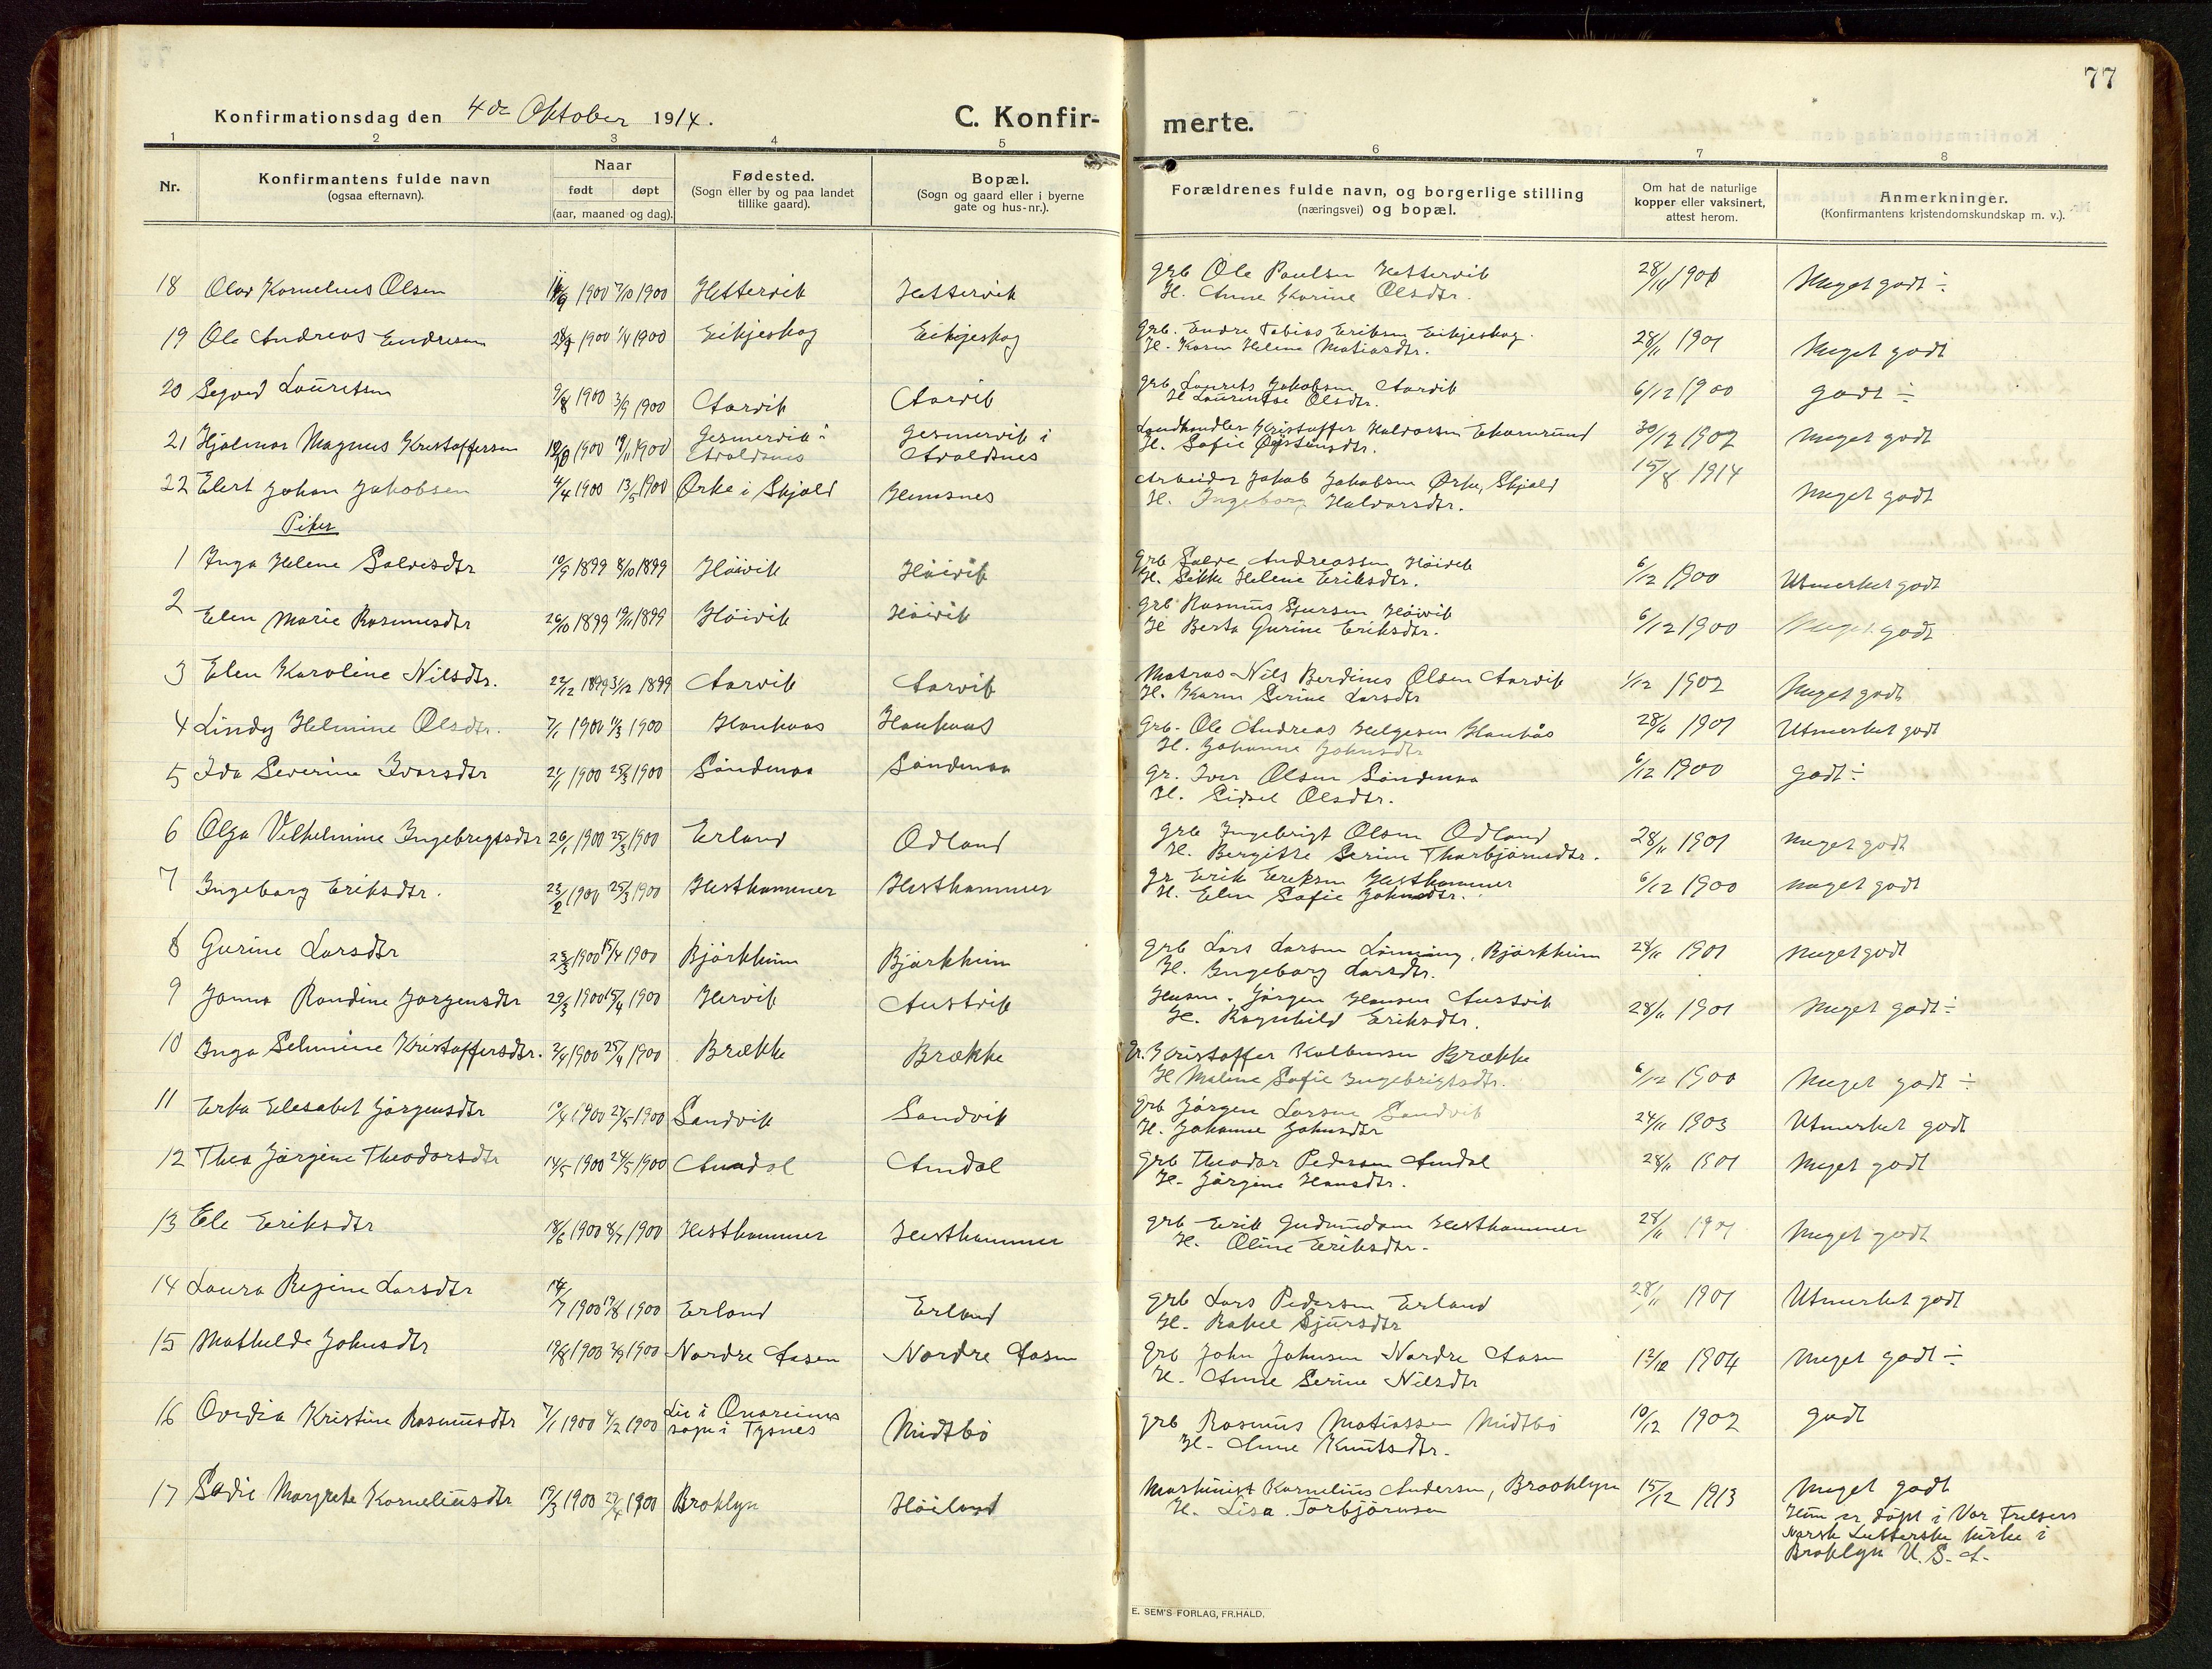 77
Konfirmationsdag den 4de Oktober 1914.
C. Konfir-
merte.
1 2 3 4 5 6 7 8
Nr.
Konfirmantens fulde navn
(ogsaa efternavn).
Naar
født døpt
(aar, maaned og dag).
Fødested.
(Sogn eller by og paa landet
tillike gaard).
Bopæl.
(Sogn og gaard eller i byerne
gate og hus-nr.).
Forældrenes fulde navn, og borgerlige stilling
(næringsvei) og bopæl.
Om hat de naturlige
kopper eller vaksinert,
attest herom.
Anmerkninger.
(Konfirmantens kristendomskundskap m. v.).
18 Olav Kornelius Olsen 1900 7/10 1900 Hettervik Hettervik grb Ole Paulsen Hettervik 28/11 1901 Meget godt ÷
H. Anne Karine Olsdtr.
19 Ole Andreas Endresen 1900 1/4 1900 Eikjeskog Eikjeskog grb. Endre Tobias Eriksen Eikjeskog. 28/11 1901 Meget godt
H. Karen Helene Matiasdtr.
20 Sejord Lauritsen 9/8 1900 3/9 1900 Aarvik Aarvik grb Laurits Jakobsen Aarvik 6/12 1900 godt ÷
H Laurentse Olsdtr.
21 Hjalmar Magnus Kristoffersen 12/10 1900 19/11 1900 Gesmervik i Gesmervik i Landhandler Kristoffer Haldorsen Ekornsund 30/12 1902 Meget godt
Avaldsnes Avaldsnes H. Sofie Østensdtr.
22 Elert Johan Jakobsen 4/4 1900 13/5 1900 Ørke i Skjold Hemsnes Arbeider Jakob Jakobsen Ørke, Skjold 15/8 1914 Meget godt
H. Ingeborg Haldorsdtr.
Piker
1 Inga Helene Salvesdtr 10/9 1899 8/10 1899 Høivik Høivik grb Salve Andreassen Høivik 6/12 1900 Utmerket godt
H. Sikke Helene Eriksdtr.
2 Elen Marie Rasmusdtr 26/10 1899 19/11 1899 Høivik Høivik grb Rasmus Sjursen Høivik 6/12 1900 Meget godt
H Berta Gurine Eriksdtr.
3 Elen Karoline Nilsdtr. 22/12 1899 31/12 1899 Aarvik Aarvik Matros Nils Berdines Olsen Aarvik 1/12 1902 Meget godt
H. Karen Serine Larsdtr
4 Lindy Helmine Olsdtr. 7/1 1900 11/3 1900 Haukaas Haukaas Grb. Ole Andreas Helgesen Haukås 28/11 1901 Utmerket godt
H. Johanne Johnsdtr
5 Ida Severine Ivarsdtr 21/1 1900 25/3 1900 Sandmoa Sandmoa gr. Iver Olsen Sandmoa 6/12 1900 godt ÷
H. Sidsel Olsdtr.
6 Olga Vilhelmine Ingebregtsdtr 26/1 1900 25/3 1900 Erland Odland grb Ingebrigt Olsen Odland 28/11 1901 Meget godt
H. Bergitte Serine Thorbjørnsdtr.
7 Ingeborg Eriksdtr. 23/2 1900 25/3 1900 Hesthammer Hesthammer gr Erik Eriksen Hesthammer 6/12 1900 meget godt
H. Elen Sofie Johnsdtr.
8 Gurine Larsdtr 23/3 1900 15/4 1900 Bjørkheim Bjørkheim grb Lars Larsen Lønning, Bjørkheim 28/11 1901 Meget godt
H. Ingeborg Larsdtr.
9 Janna Randine Jørgensdtr 29/3 1900 15/4 1900 Hervik Austvik Husm. Jørgen Hansen Austvik 28/11 1901 Meget godt ÷
H. Ragnhild Eriksdtr.
10 Inga Selmine Kristoffersdtr. 2/4 1900 25/4 1900 Brække Brække Gr. Kristoffer Kolbensen Brække 6/12 1900 Meget godt ÷
H Malene Sofie Ingebrigtsdtr.
11 Erka Elesabet Jørgensdtr 10/4 1900 27/5 1900 Sandvik Sandvik grb Jørgen Larsen Sandvik 24/11 1903 Utmerket godt
H. Johanne Johnsdtr
12 Thea Jørgine Theodorsdtr 14/5 1900 24/5 1900 Amdal Amdal grb Theodor Pedersen Amdal 28/11 1901 Meget godt
H. Jørgine Hansdtr.
13 Ele Eriksdtr 18/6 1900 8/7 1900 Hesthammer Hesthammer grb Erik Gudmundsen Hesthammer 28/11 1901 Meget godt
H. Oline Eriksdtr.
14 Laura Regine Larsdtr 14/7 1900 19/8 1900 Erland Erland grb Lars Pedersen Erland 28/11 1901 Utmerket godt
H. Rakel Sjursdtr
15 Mathilde Johnsdtr 19/8 1900 2/9 1900 Nordre Aasen Nordre Aasen grb John Johnsen Nordre Aasen 12/12 1904 Meget godt ÷
H. Anne Serine Nilsdtr
16 Ovidia Kristine Rasmusdtr 7/1 1900 4/2 1900 Lie i Onareims Midtbø grb Rasmus Matiassen Midtbø 10/12 1902 godt
sogn i Tysnes H. Anne Knutsdtr.
17 Sadie Margrete Korneliusdtr 19/3 1900 29/4 1900 Broklyn Høiland Maskinist Kornelius Andersen, Brooklyn 15/12 1913 Meget godt
H. Lisa Torbjørnsen Hun er døpt i Vor Frelsers
Norsk Lutterske kirke i
Broklyn U. S. A.
E. SEM'S FORLAG, FR.HALD.